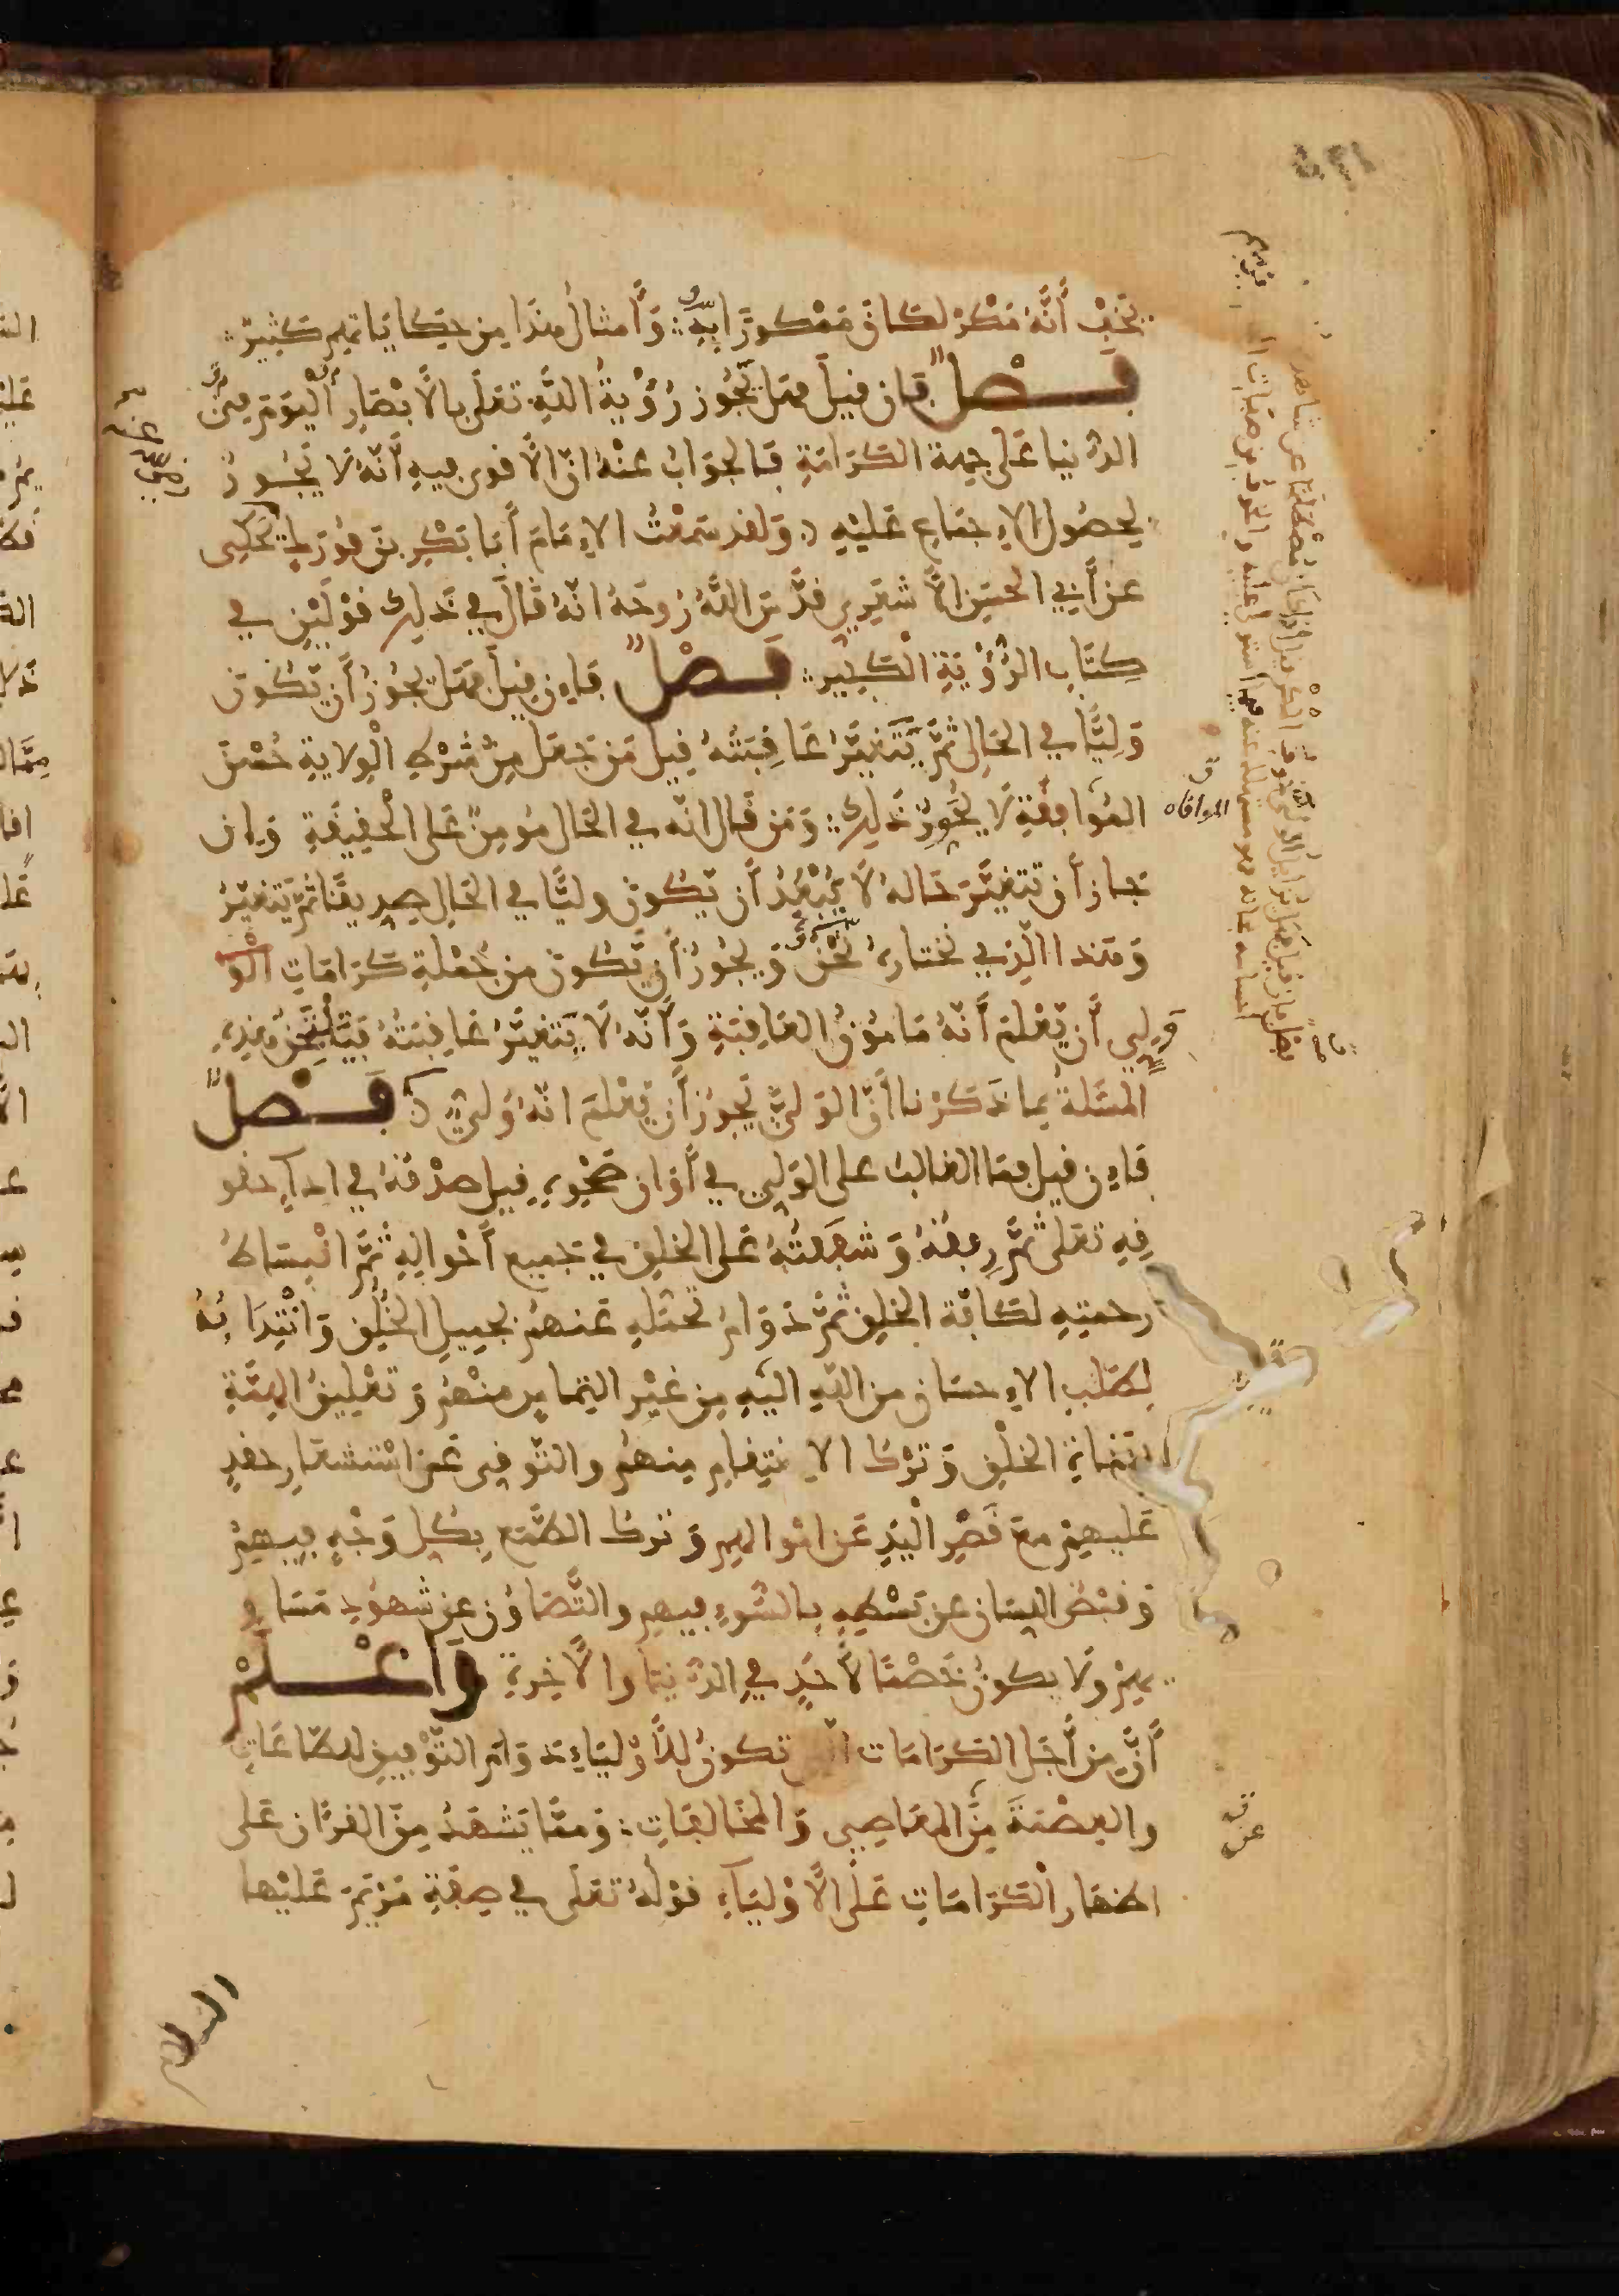 يخف أَنَّهُ مَكْرٌ لكان مَمْكورًا بِهِ وَأَمثال هذا من حكاياتهم كثيرة
فصل فإن قيل هل تجوز رُؤْيةُ اللهِ تعلى بالأبْصَارِ اليَومَ في
الدنيا على جهة الكرامةِ فالجوَابُ عنْهُ انّ الأقوى فيهِ أَنّهُ لا يجُوز
لحصُول الإجماع عَليْهِ وَلقد سَمعْتُ الإمَامَ أَبا بَكْرِ بنَ فورَك يحكى
عن أَبي الحسَن الأَشعَرِي قدَّسَ اللَّهُ رُوحَهُ انّهُ قَالَ في ذَلِك قوْليْنِ في
كِتَابِ الرُّؤْيَةِ الْكَبِيرِ فَصْلٌ فإن قيلَ هَل يجُوزُ أَن يَكُون
وَلِيًّا في الحَالِ ثمَّ تَتَغيَّرُ عَاقِبَتُهُ قيل مَن جَعَل مِنْ شَرْطِ الْوِلايةِ حُسْنَ
المُوَافقةِ لا يُجَوِّزُ ذَلِك وَمَن قَال انّه في الحَال مُومِنٌ عَلى الْحقِيقَةِ وَإن
جازَ أَن تتغيَّرَ حَالهُ لا يَبْعُدُ أَن يَكُونَ وليًّا في الحَالِ صِدِيقًا ثمَّ يَتَغيَّرُ
وَهَذا الّذي نختارهُ نَحْنُ وَيجُوزُ أَن يَّكُونَ من جُمْلةِ كَرَامَاتِ الْو
وَلِي أَن يّعْلمَ أَنّهُ مَامُونُ العَاقِبَةِ وَأَنّهُ لا تَتغيَّرُ عَاقِبَتُهُ فَتَلْتَحِقُ هَذِهِ
المسَّلةُ بِما ذَكَرْنا أنَّ الوَليَّ يَجُوزُ أَن يَعْلمَ انّهُ وَليٌّ فَصْلٌ
فإن قيل فما الغالبُ على الوَلي في أَوَان صَحْوِهِ قيل صدْقهُ في ادآءِ حقو
قِهِ تَعَلى ثمَّ رِفقهُ وَشفقتُهُ عَلى الخلقِ في جَميع أَحْوالِهِ ثمَّ انْبسَاطُ
رحمتِهِ لكافّة الخلقِ ثمَّ دَوَامُ تحمّلهِ عَنهُمْ بجميلِ الخُلُقِ وَابْتِدَائهُ
لطلب الإحسان من اللهِ اليهِ مِن غيْر التماسٍ منْهُمْ وَتعْليقُ الهمَّةِ
بنجاة الخلْقِ وَتَرْكُ الانتقامِ منهُم والتوقي عَن اسْتشعَارِ حقدٍ
عَليهِمْ معَ قَصْرِ الْيَدِ عَن امْوالهِم وَتركُ الطّمَعِ بِكلِّ وَجْهٍ فيهِمْ
وَقبْضُ اللسَان عن بَسْطِهِ بالسُّوءِ فيهِم والتَّصَاوُن عن شهُودِ مَسَاوِ
يهِمْ وَلا يكونُ خَصْمًا لأَحَدٍ في الدُّنيَا والأَخِرَةِ وَاعْلَمْ
أَنَّ مِن أَجَلِّ الكَرَامَات تكونُ للأَوْليَاءِ دَوَامَ التَّوْفيقِ للطّاعَاتِ
والعِصْمَةَ مِنَ المعَاصِي وَالمخَالفَاتِ وَممَّا يَشهَدُ مِنَ القرْآن عَلى
اظهَار الْكَرَامَاتِ عَلَى الأَوْليَآءِ قوْلهُ تعَلى في صِفَةِ مَرْيَمَ عَليْها
الموافاه
السلام